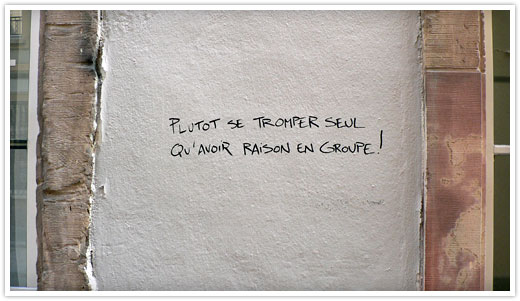 PLUTOT SE TROMPER SEUL
QU'AVOIR RAISON EN GROUPE!